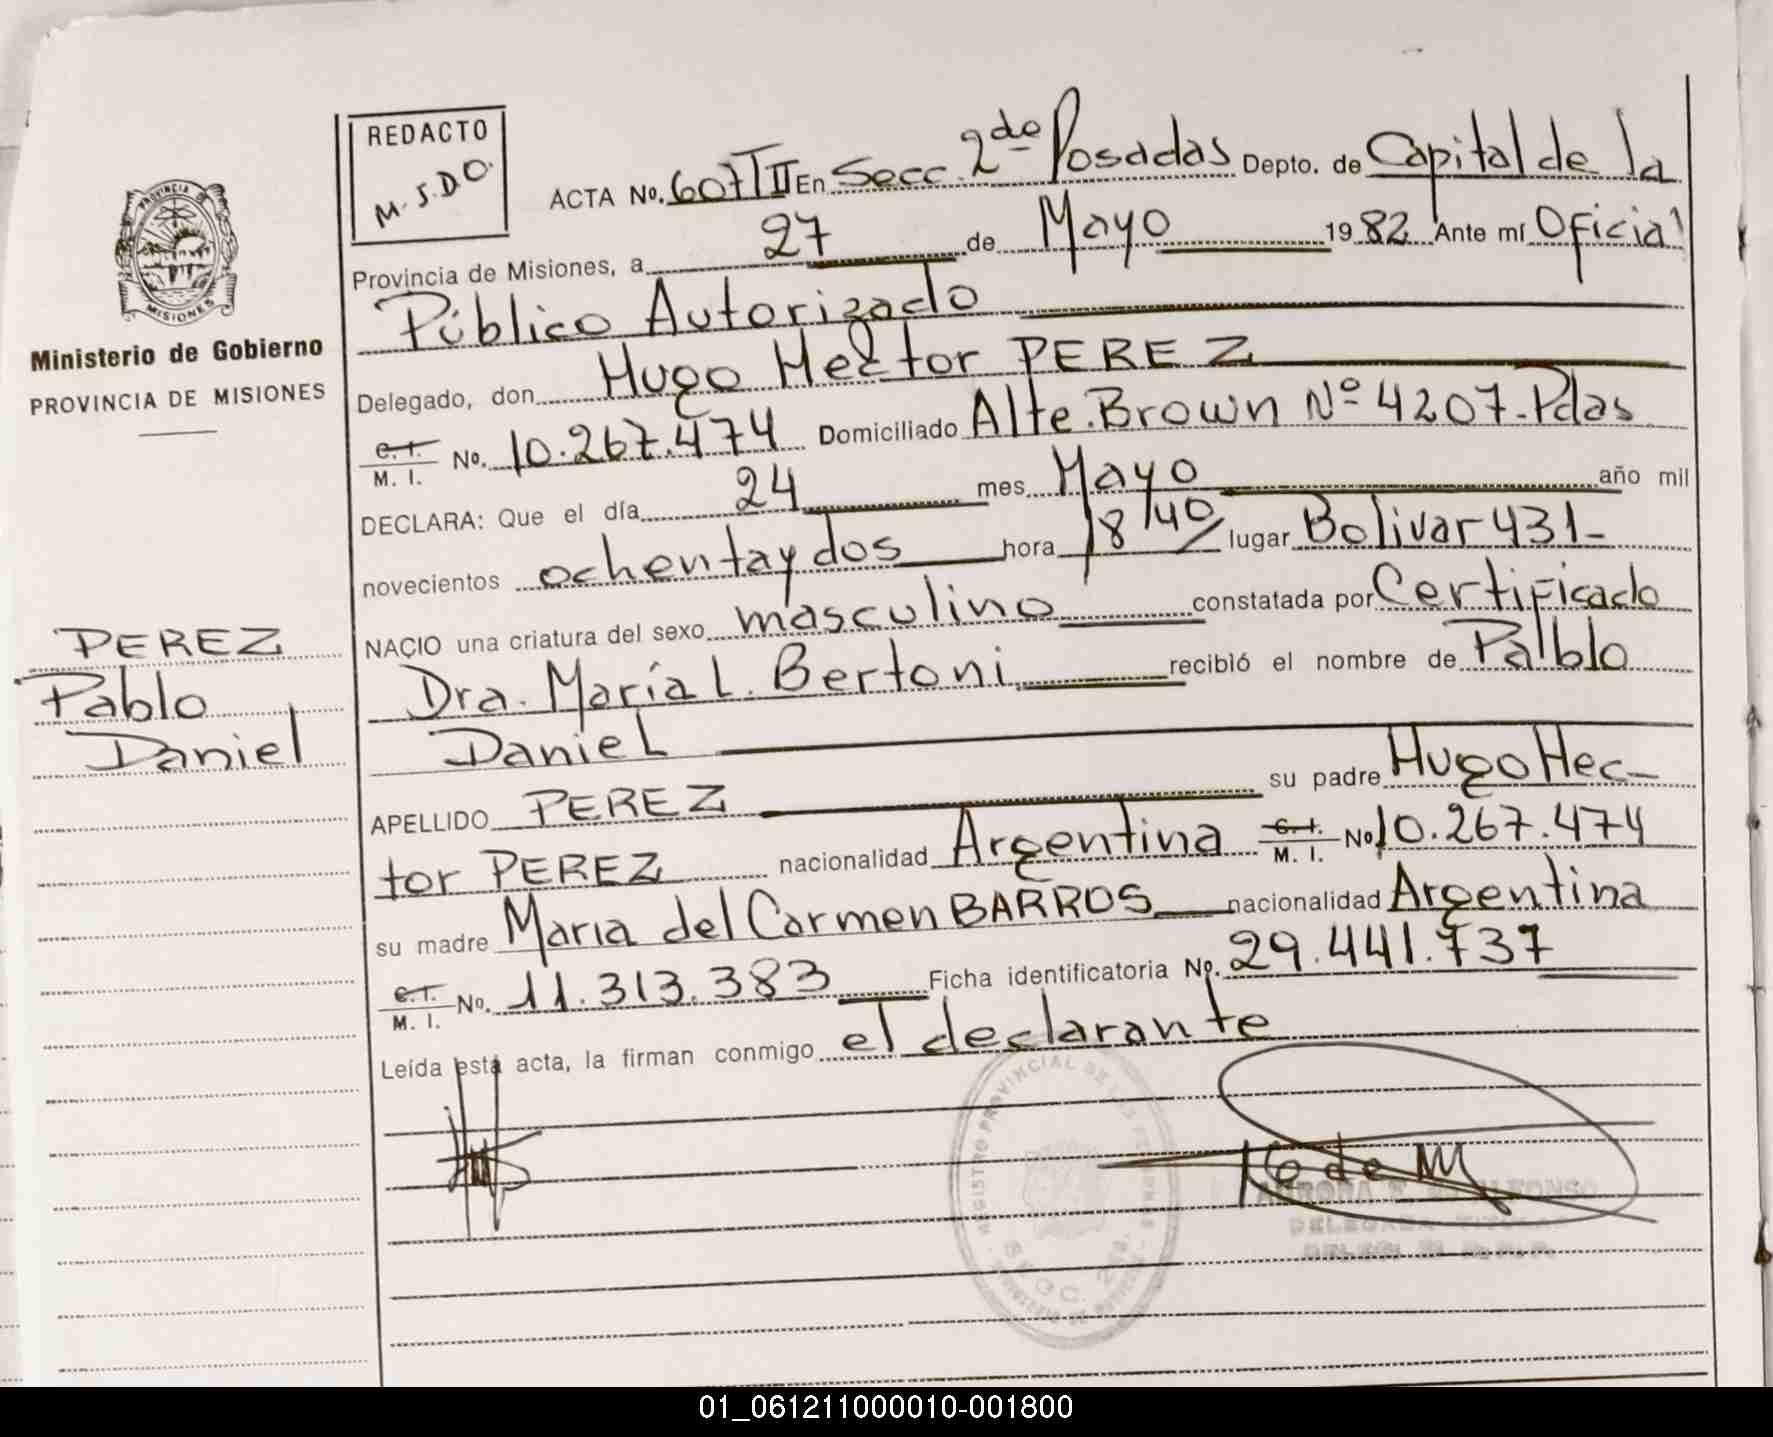 REDACTO
M.S.DO.
ACTA No. 607 TII En Secc. 2da Posadas Depto. de Capital de la
Provincia de Misiones, a 27 de Mayo 1982 Ante mí Oficial
Público Autorizado
Delegado, don Hugo Hector PEREZ
C.I. M. I. No. 10.267.474 Domiciliado Alte. Brown Nº 4207-Pdas
DECLARA: Que el día 24 mes Mayo año mil
novecientos ochenta y dos hora 18/40/ lugar Bolivar 431-
NACIO una criatura del sexo masculino constatada por Certificado
Dra. María L. Bertoni recibió el nombre de Palblo
Daniel
APELLIDO PEREZ su padre Hugo Hec-
tor PEREZ nacionalidad Argentina C.I. M. I. No 10.267.474
su madre Maria del Carmen BARROS nacionalidad Argentina
C.I. M. I. No. 11.313.383 Ficha identificatoria No. 29.441.737
Leída está acta, la firman conmigo el declarante
PROVINCIA DE
MISIONES
Ministerio de Gobierno
PROVINCIA DE MISIONES
PEREZ
Pablo
Daniel
REGISTRO PROVINCIAL DE LAS PERSONAS
SECC. 2da.
DELEGADA TITULAR
01_061211000010-001800